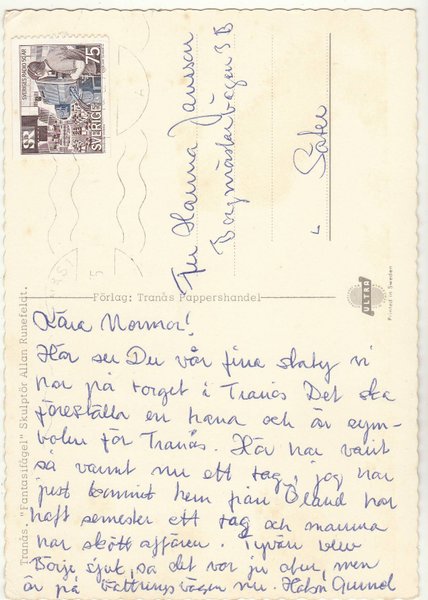 Kära Mormor!
Här ser Du vår fina staty vi
har på torget i Tranås Det ska
föreställa en trana och är sym-
bolen för Tranås. Här har varit
så varmt nu ett tag, jag har
just kommit hem från Öland har
haft semester ett tag och mamma
har skött affären. Tyvärr blev
Börje sjuk, så det var ju synd, men
är på bättringsvägen nu. Hälsn Gunnel
Fru Hanna Jansson
Borgmästarvägen 3 B
Säter
Förlag: Tranås Pappershandel
Tranås. "Fantasifågel" Skulptör Allan Runefeldt.
ULTRA
Printed in Sweden
SVERIGES RADIO 50 ÅR
75
SVERIGE
SR